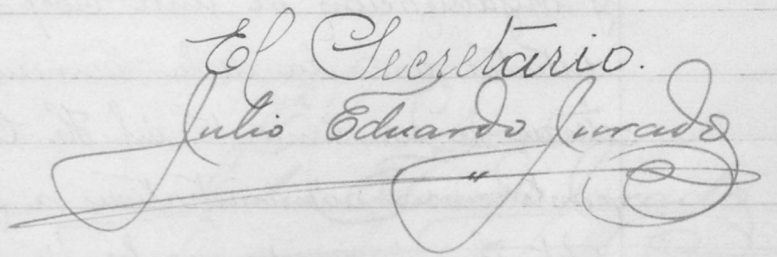 El Secretario.
Julio Eduardo Jurado